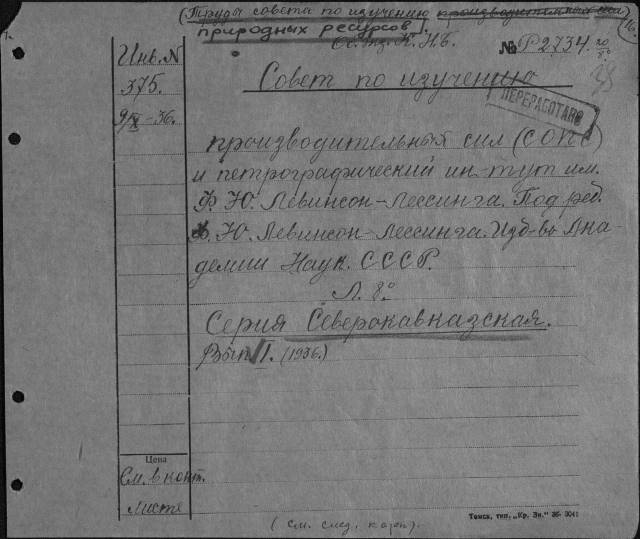 (Труды совета по изучению производительных сил
природных ресурсов).
Ос. тз. К. Н. Б. № Р2734 20/8°
Инв. N
375.
9/IX-36.
Совет по изучению
ПЕРЕРАБОТАНО
производительных сил (СОПС)
и петрографический ин-тут им.
Ф. Ю. Левинсон-Лессинга. Под ред.
Ф. Ю. Левинсон-Лессинга. Изд-во Ака-
демии Наук. СССР.
Л. 8°
Серия Северокавказская.
Вып. 1. (1936.)
Цена
См. в конт.
листе
Томск, тип. „Кр. Зн." 36. 3041
(см. след. карт).